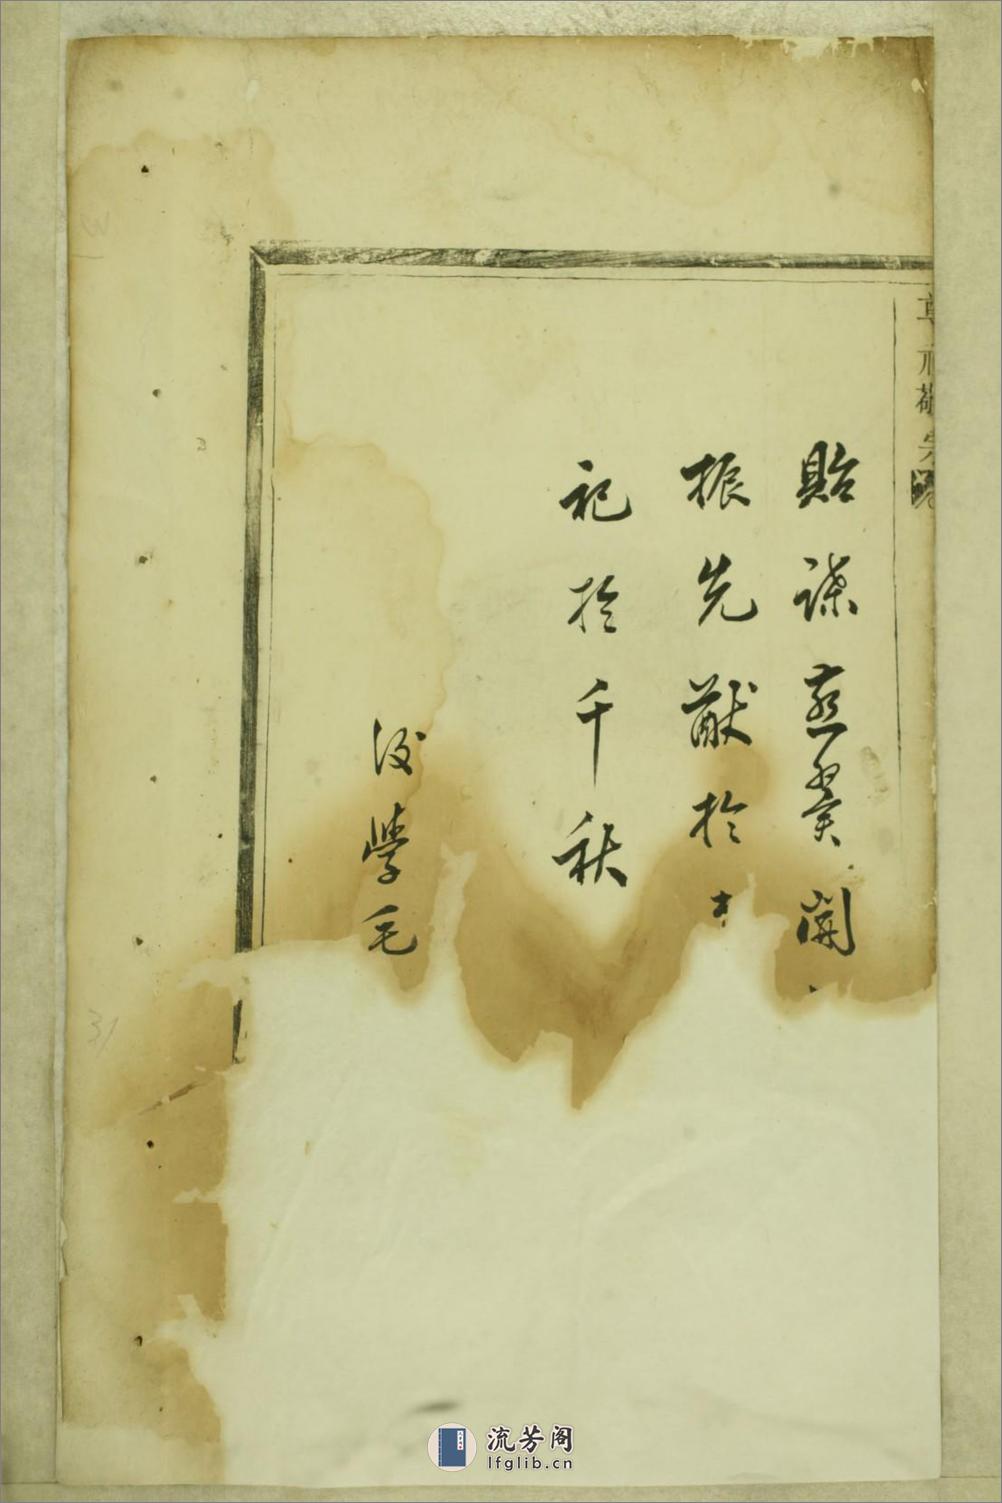 尊祖敬宗
貽謀燕翼開
振先猷於
祀於千秋
後學毛
流芳阁
lfglib.cn